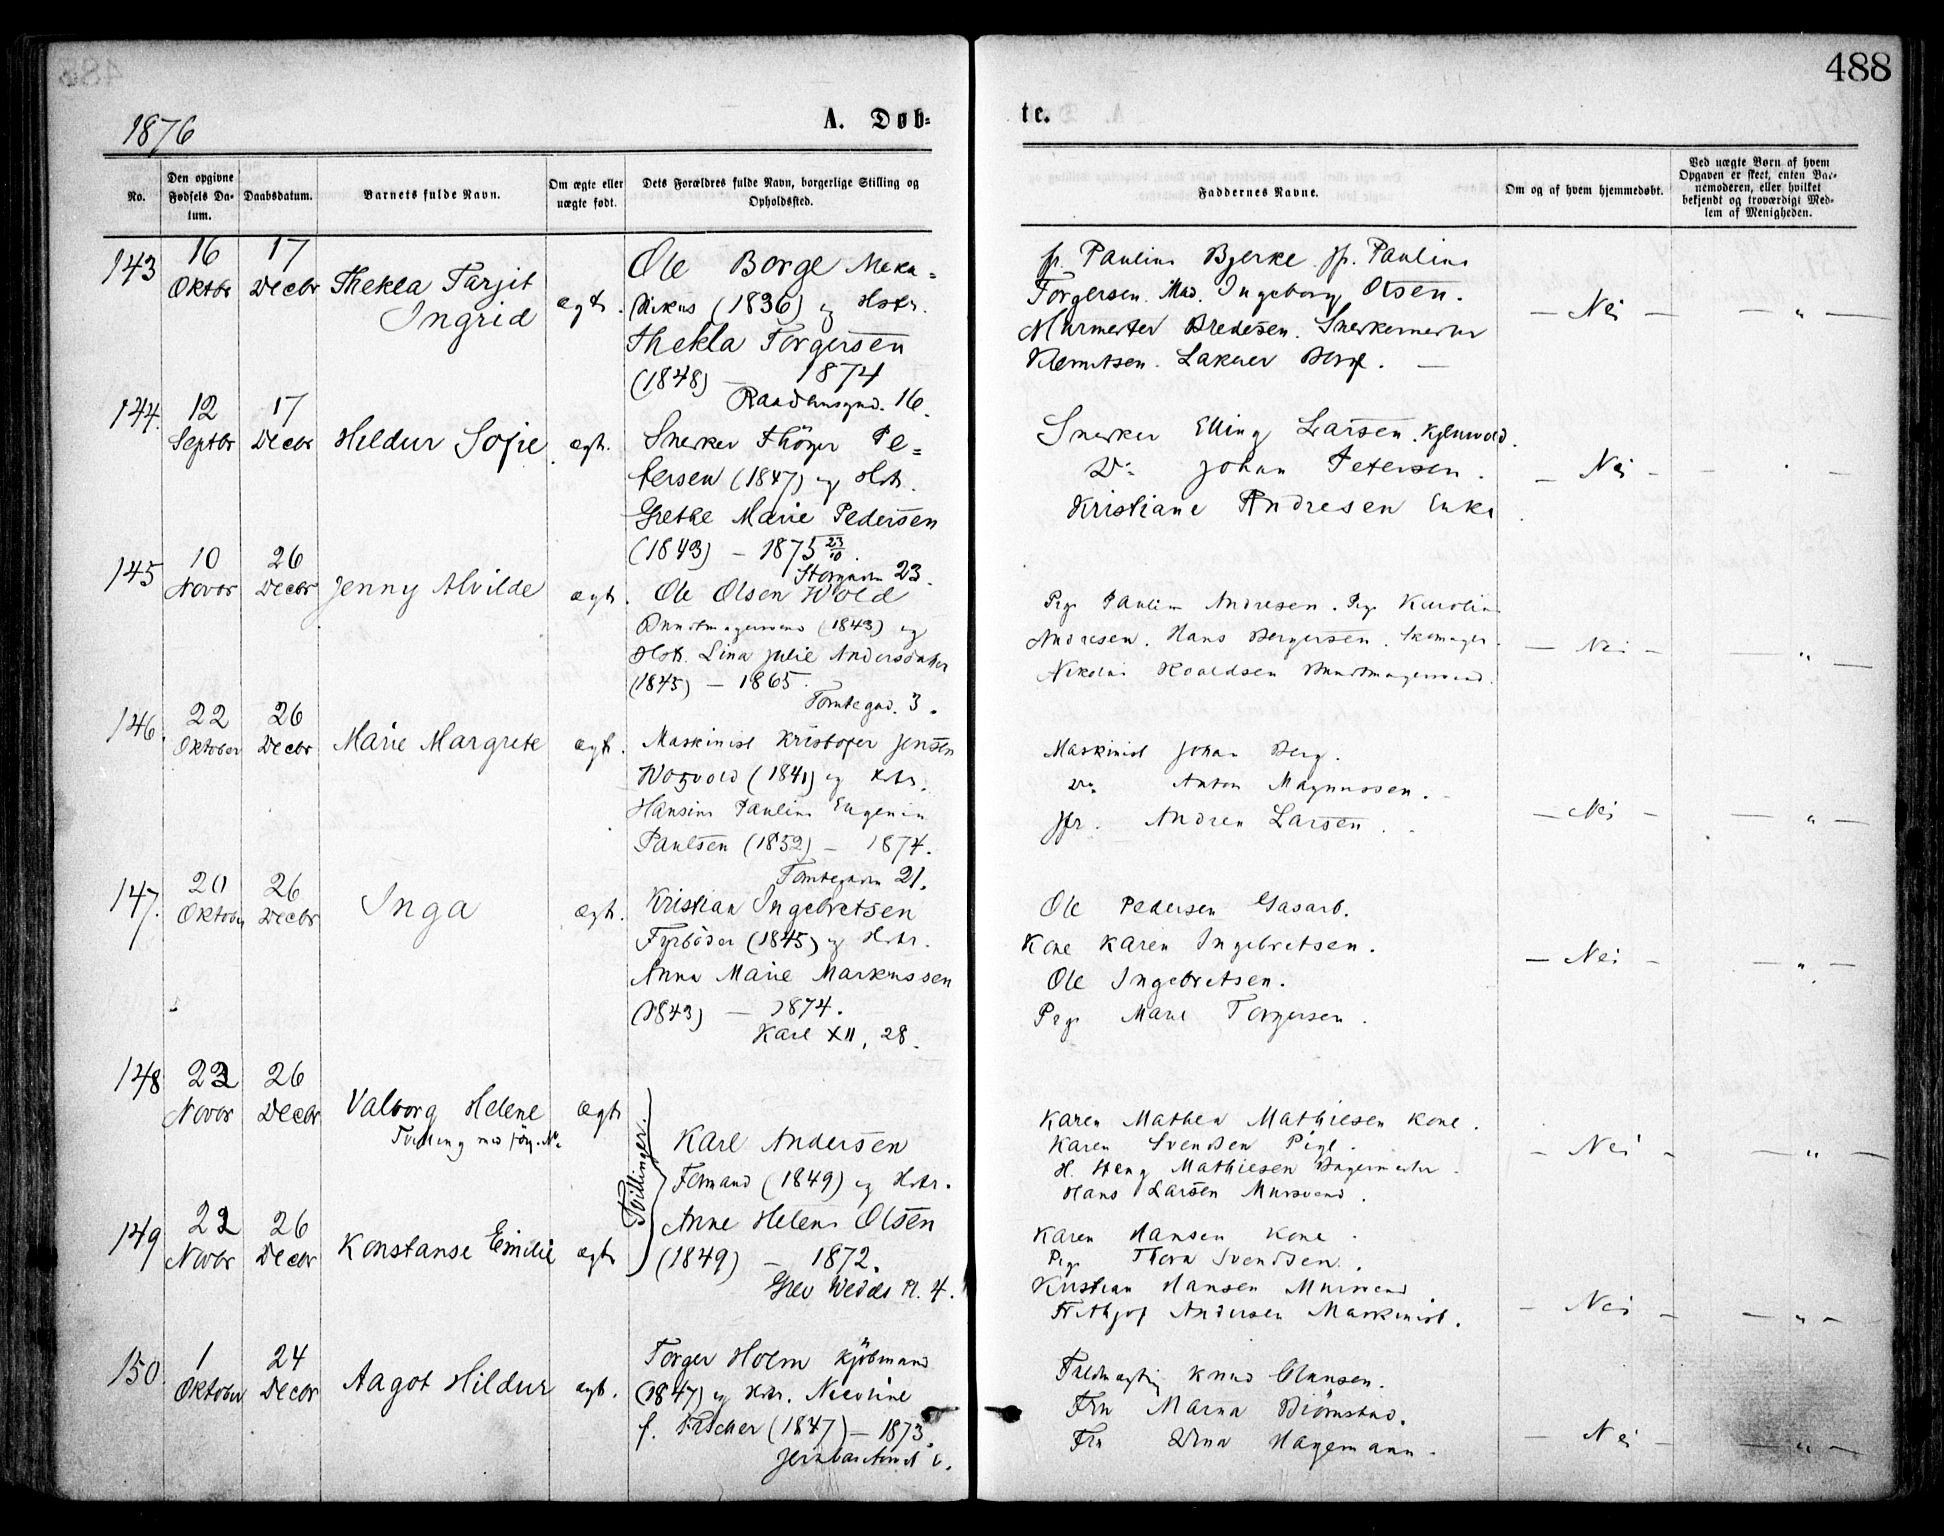 488
1876
A. Døb-
te.
No.
Den opgivne Fødsels Da-
tum.
Daabsdatum.
Barnets fulde Navn.
Om ægte eller uægte født.
Dets Forældres fulde Navn, borgerlige Stilling og Opholdssted.
Faddernes Navne.
Om og af hvem hjemmedøbt.
Ved uægte Børn af hvem
Opgaven er skeet, enten Bar-
nemoderen, eller hvilket
bekjendt og troværdigt Med-
lem af Menigheden.
143
16 Oktbr
17 Decbr
Thekla Tarjit
Ingrid
ægt.
Ole Borge Meka-
nikus (1836) og Hstr.
Thekla Torgersen
(1848) — 1874
Raadhusgad. 16.
fr. Pauline Bjerke. jfr. Pauline
Torgersen. Mad. Ingeborg Olsen.
Murmester Bredesen. Snekkermester
Klemetsen. Lakeier Berg. —
— Nei —
— „ —
144.
12 Septbr
17 Decbr
Hildur Sofie
ægt.
Snekker Thöger Pe-
tersen (1847) og Hstr.
Grethe Marie Pedersen
(1843) — 1875 23/10.
Storgaden 23.
Snekker Elling Larsen.
Do Johan Petersen.
Kristiane Andresen Enke
— Nei —
145
10 Novbr
26 Decbr
Jenny Alvilde
ægt.
Ole Olsen Wold
Buntmagersvend (1843) og
Hstr. Lina Julie Andersdatter
(1845) — 1865.
Tomtegad. 3.
Pige Pauline Andresen. Pige Karoline
Andresen. Hans Bergersen. Skomager.
Nikolai Roaldsen Buntmagersvend.
— Nei —
— „ —
146.
22 Oktober
26 Decbr
Marie Margrete
ægt.
Maskinist Kristofer Jensen
(1841) og Hstr.
Hansine Pauline Eugenie
Paulsen (1852) — 1874.
Tomtegaden 21.
Maskinist Johan Berg.
Do Anton Magnussen.
Jfr. Andrea Larsen.
— Nei —
— „ —
147.
20 Oktober
26 Decbr
Inga
ægt.
Kristian Ingebretsen
Fyrböder (1845) og Hstr.
Anna Marie Markussen
(1843) — 1874.
Karl XII, 28.
Ole Pedersen Gasarb.
Kone Karen Ingebretsen.
Ole Ingebretsen.
Pige Marie Torgersen.
— Nei —
— „ —
148
22 Novbr
26 Decbr
Valborg Helene
Tvilling med følg. No.
ægt
Tvillinger.
Karl Andersen
Formand (1849) og Hstr.
Anne Helene Olsen
(1849) — 1872.
Grev Wedels Pl. 4.
Karen Mathea Mathiesen Kone.
Karen Svendsen Pige.
H. Mathiesen Bagermester.
Hans Larsen Mursvend.
— Nei —
— „ —
149
22 Novbr
26 Decbr
Konstanse Emilie
ægt
Karen Hansen Kone.
Pige Thora Svendsen.
Kristian Hansen Mursvend
Frithjof Andersen Maskinist.
— Nei —
— „ —
150
1 Oktober
24 Decbr
Aagot Hildur
ægt.
Torger Holm Kjöbmand
(1847) og Hstr. Nicoline
f. (1847) — 1873.
Fuldmægtig Knud Clausen.
Fru Marna Biörnstad.
Fru Hagemann.
— Nei —
— „ —